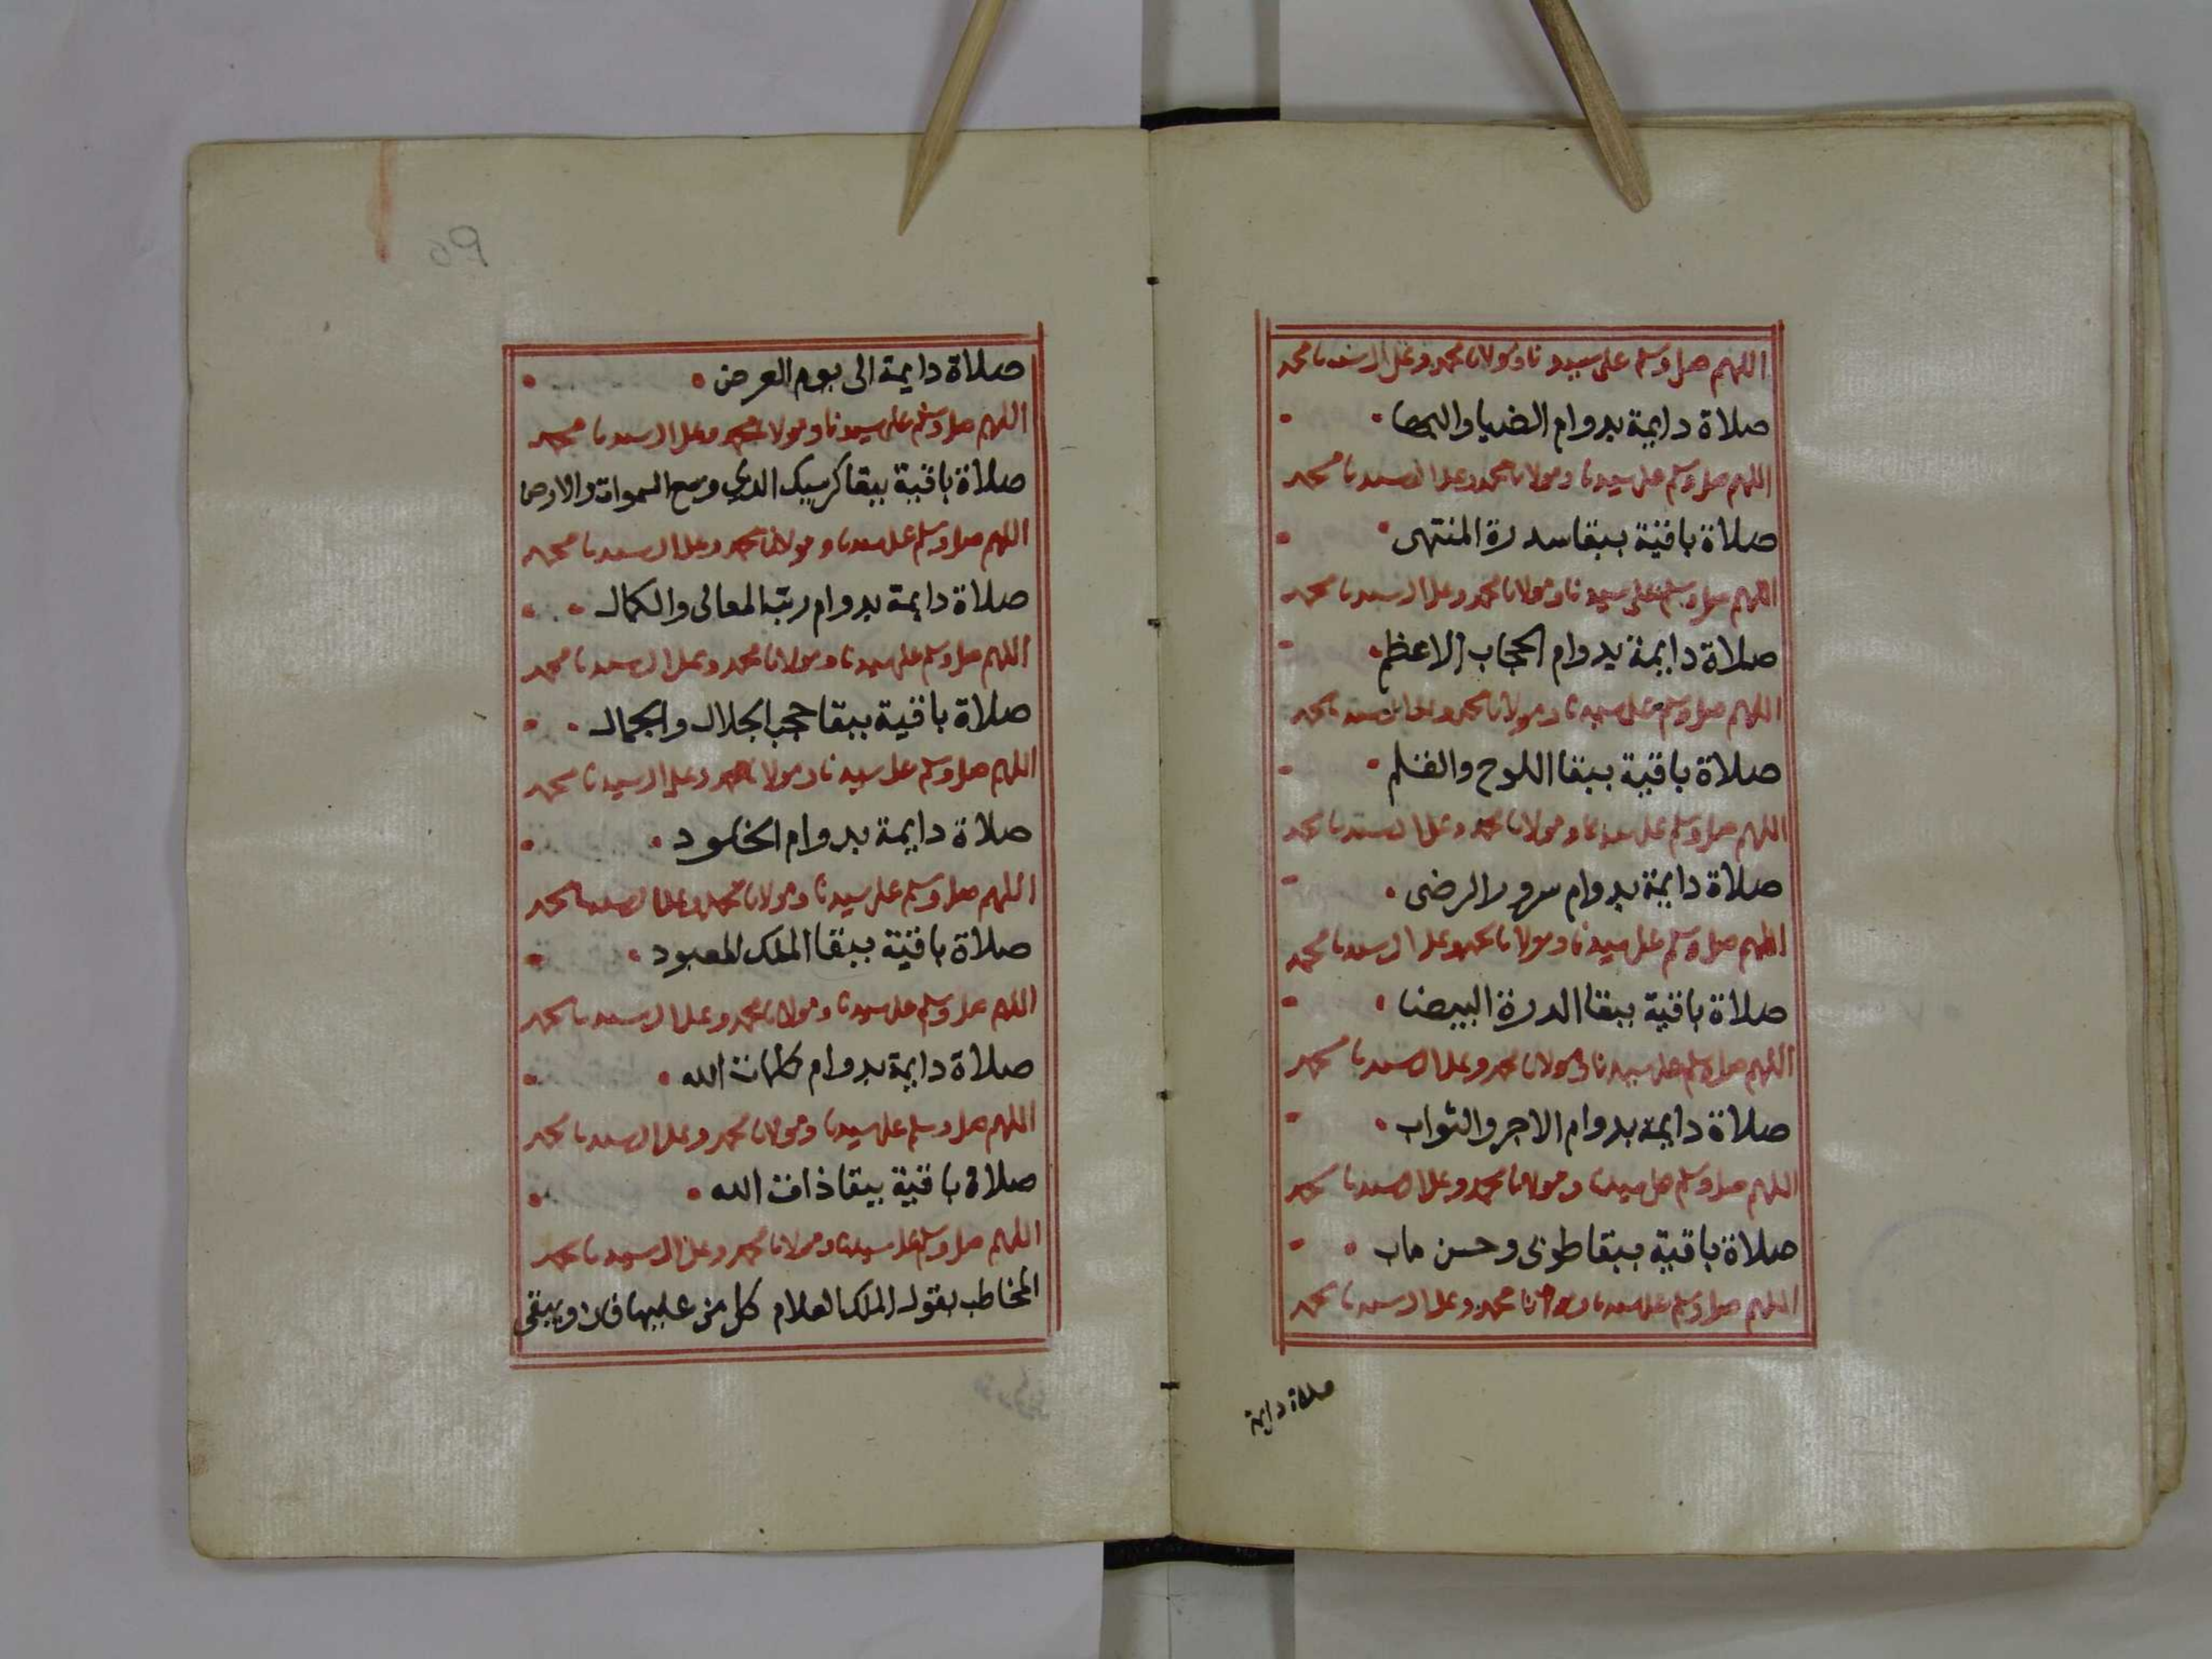 اللهم صل وسلم على سيدنا ومولانا محمد وعلى ال سيدنا محمد
صلاة دايمة بدوام الضيا والبها
اللهم صل وسلم على سيدنا ومولانا محمد وعلى ال سيدنا محمد
صلاة باقية ببقا سدرة المنتهى
اللهم صل وسلم على سيدنا ومولانا محمد وعلى ال سيدنا محمد
صلاة دايمة بدوام الحجاب الاعظم
اللهم صل وسلم على سيدنا ومولانا محمد وعلى ال سيدنا محمد
صلاة باقية ببقا اللوح والقلم
اللهم صل وسلم على سيدنا ومولانا محمد وعلى ال سيدنا محمد
صلاة دايمة بدوام سرور الرضى
اللهم صل وسلم على سيدنا ومولانا محمد وعلى ال سيدنا محمد
صلاة باقية ببقا الدرة البيضا
اللهم صل وسلم على سيدنا ومولانا محمد وعلى ال سيدنا محمد
صلاة دايمة بدوام الاجر والثواب
اللهم صل وسلم على سيدنا ومولانا محمد وعلى ال سيدنا محمد
صلاة باقية ببقا طوبى وحسن ماب
اللهم صل وسلم على سيدنا ومولانا محمد وعلى ال سيدنا محمد
صلاة دايمة
٩٥
صلاة دايمة الى يوم العرض
اللهم صل وسلم على سيدنا ومولانا محمد وعلى ال سيدنا محمد
صلاة باقية ببقا كرسيك الذي وسع السموات والارض
اللهم صل وسلم على سيدنا ومولانا محمد وعلى ال سيدنا محمد
صلاة دايمة بدوام رتب المعالى والكمال
اللهم صل وسلم على سيدنا ومولانا محمد وعلى ال سيدنا محمد
صلاة باقية ببقا حجب الجلال والجمال
اللهم صل وسلم على سيدنا ومولانا محمد وعلى ال سيدنا محمد
صلاة دايمة بدوام الخلود
اللهم صل وسلم على سيدنا ومولانا محمد وعلى ال سيدنا محمد
صلاة باقية ببقا الملك المعبود
اللهم صل وسلم على سيدنا ومولانا محمد وعلى ال سيدنا محمد
صلاة دايمة بدوام كلمات الله
اللهم صل وسلم على سيدنا ومولانا محمد وعلى ال سيدنا محمد
صلاة باقية ببقا ذات الله
اللهم صل وسلم على سيدنا ومولانا محمد وعلى ال سيدنا محمد
المخاطب بقول الملك العلام كل من عليها فان ويبقى